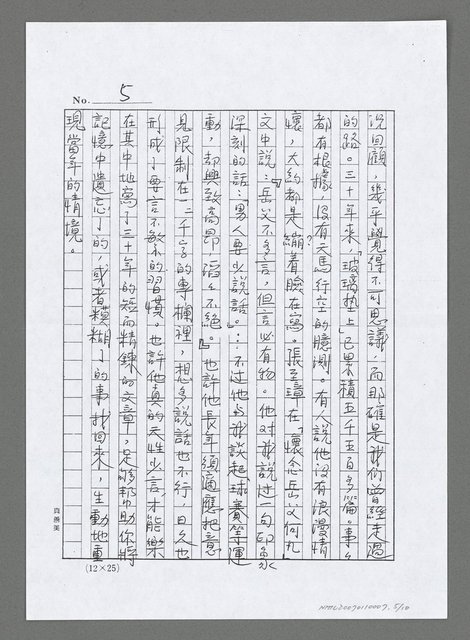 No. 5
沉回顧,幾乎覺得不可思議,而那確是我們曾經走過
的路。三十年來,「玻璃墊上」已累積五千五百多篇。事事
都有根據,沒有天馬行空的臆測。有人說他沒有浪漫情
懷,大約都是繃着臉在寫。張至璋在「懷念岳父何凡」
文中說:『岳父不多言,但言必有物。他對我說過一句印象
深刻的話:「男人要少說話。」…不過他與我談起球賽等運
動,却興致高昂,滔滔不絕。』也許他長年須適應把意
見限制在一二千字的專欄裡,想多說話也不行,日久也
形成了要言不繁的習慣。也許他真的天性少言,才能樂
在其中地寫了三十年的短而精鍊的文章,足夠幫助你將
記憶中遺忘了的,或者糢糊了的事找回來,生動地重
現當年的情境。
(12×25)
NMTL20070110007. 5/10